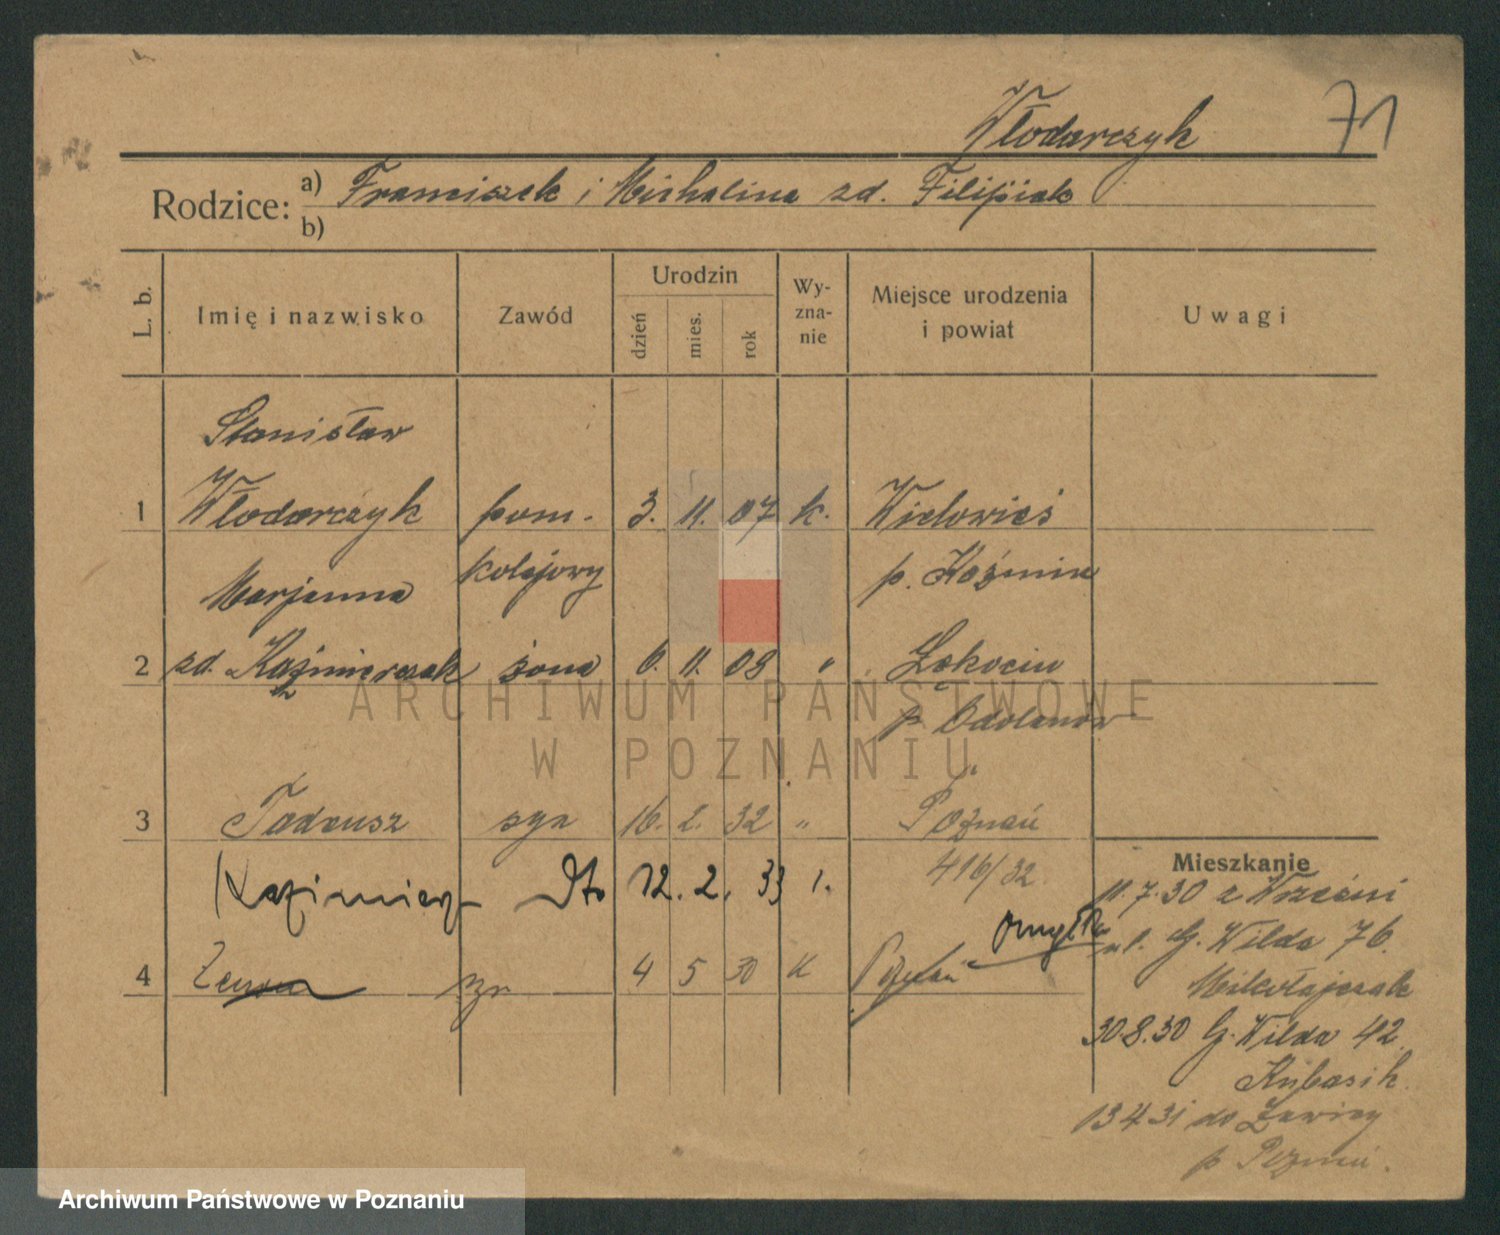 Włodarczyk 71
Rodzice: a) Franciszek i Michalina zd. Filipiak
b)
L. b. Imię i nazwisko Zawód Urodzin dzień mies. rok Wy-zna-nie Miejsce urodzenia i powiat Uwagi
Stanisław
1 Włodarczyk pom. 3. 11. 07 k. Wielowieś
kolejowy p. Koźmin
Marjanna
2 zd. Kaźmierczak żona 6. 11. 08 " Łąkociny
p. Odolanów
3 Tadeusz syn 16. 2. 32 " Poznań
416/32
Kazimierz dto 12. 2. 33 1.
omyłka
4 syn 4 5 30 K Poznań
Mieszkanie
11.7.30 z Wrześni
ul. G. Wilda 76.
Mikołajczak
30.8.30 G. Wilda 42.
Kubasik.
13 4 31 do Żewicy
p Poznań.
ARCHIWUM PAŃSTWOWE
W POZNANIU
Archiwum Państwowe w Poznaniu